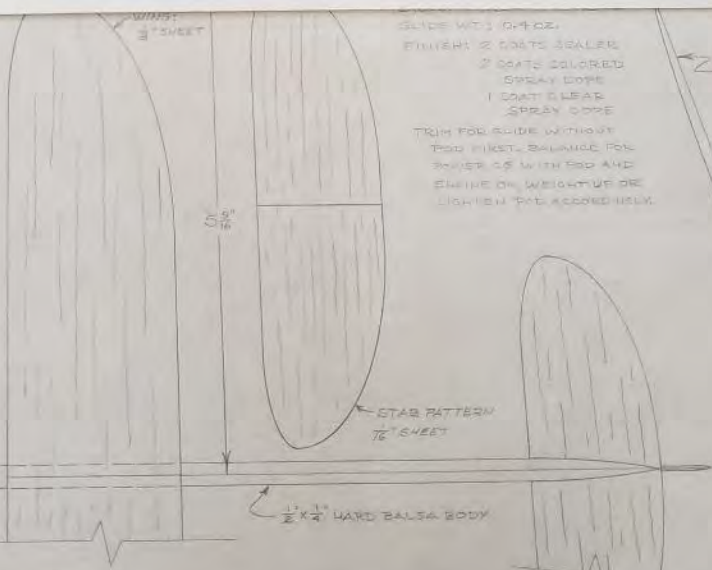 WING:
1/8" SHEET
GLIDE WT: 0.4 OZ.
FINISH: 2 COATS SEALER
2 COATS COLORED
SPRAY DOPE
1 COAT CLEAR
SPRAY DOPE
TRIM FOR GLIDE WITHOUT
POD FIRST. BALANCE FOR
POWER CG WITH POD AND
ENGINE ON. WEIGHT UP OR
LIGHTEN POD ACCORDINGLY.
5 9/16"
STAB PATTERN
1/16" SHEET
1/2" x 1/4" HARD BALSA BODY